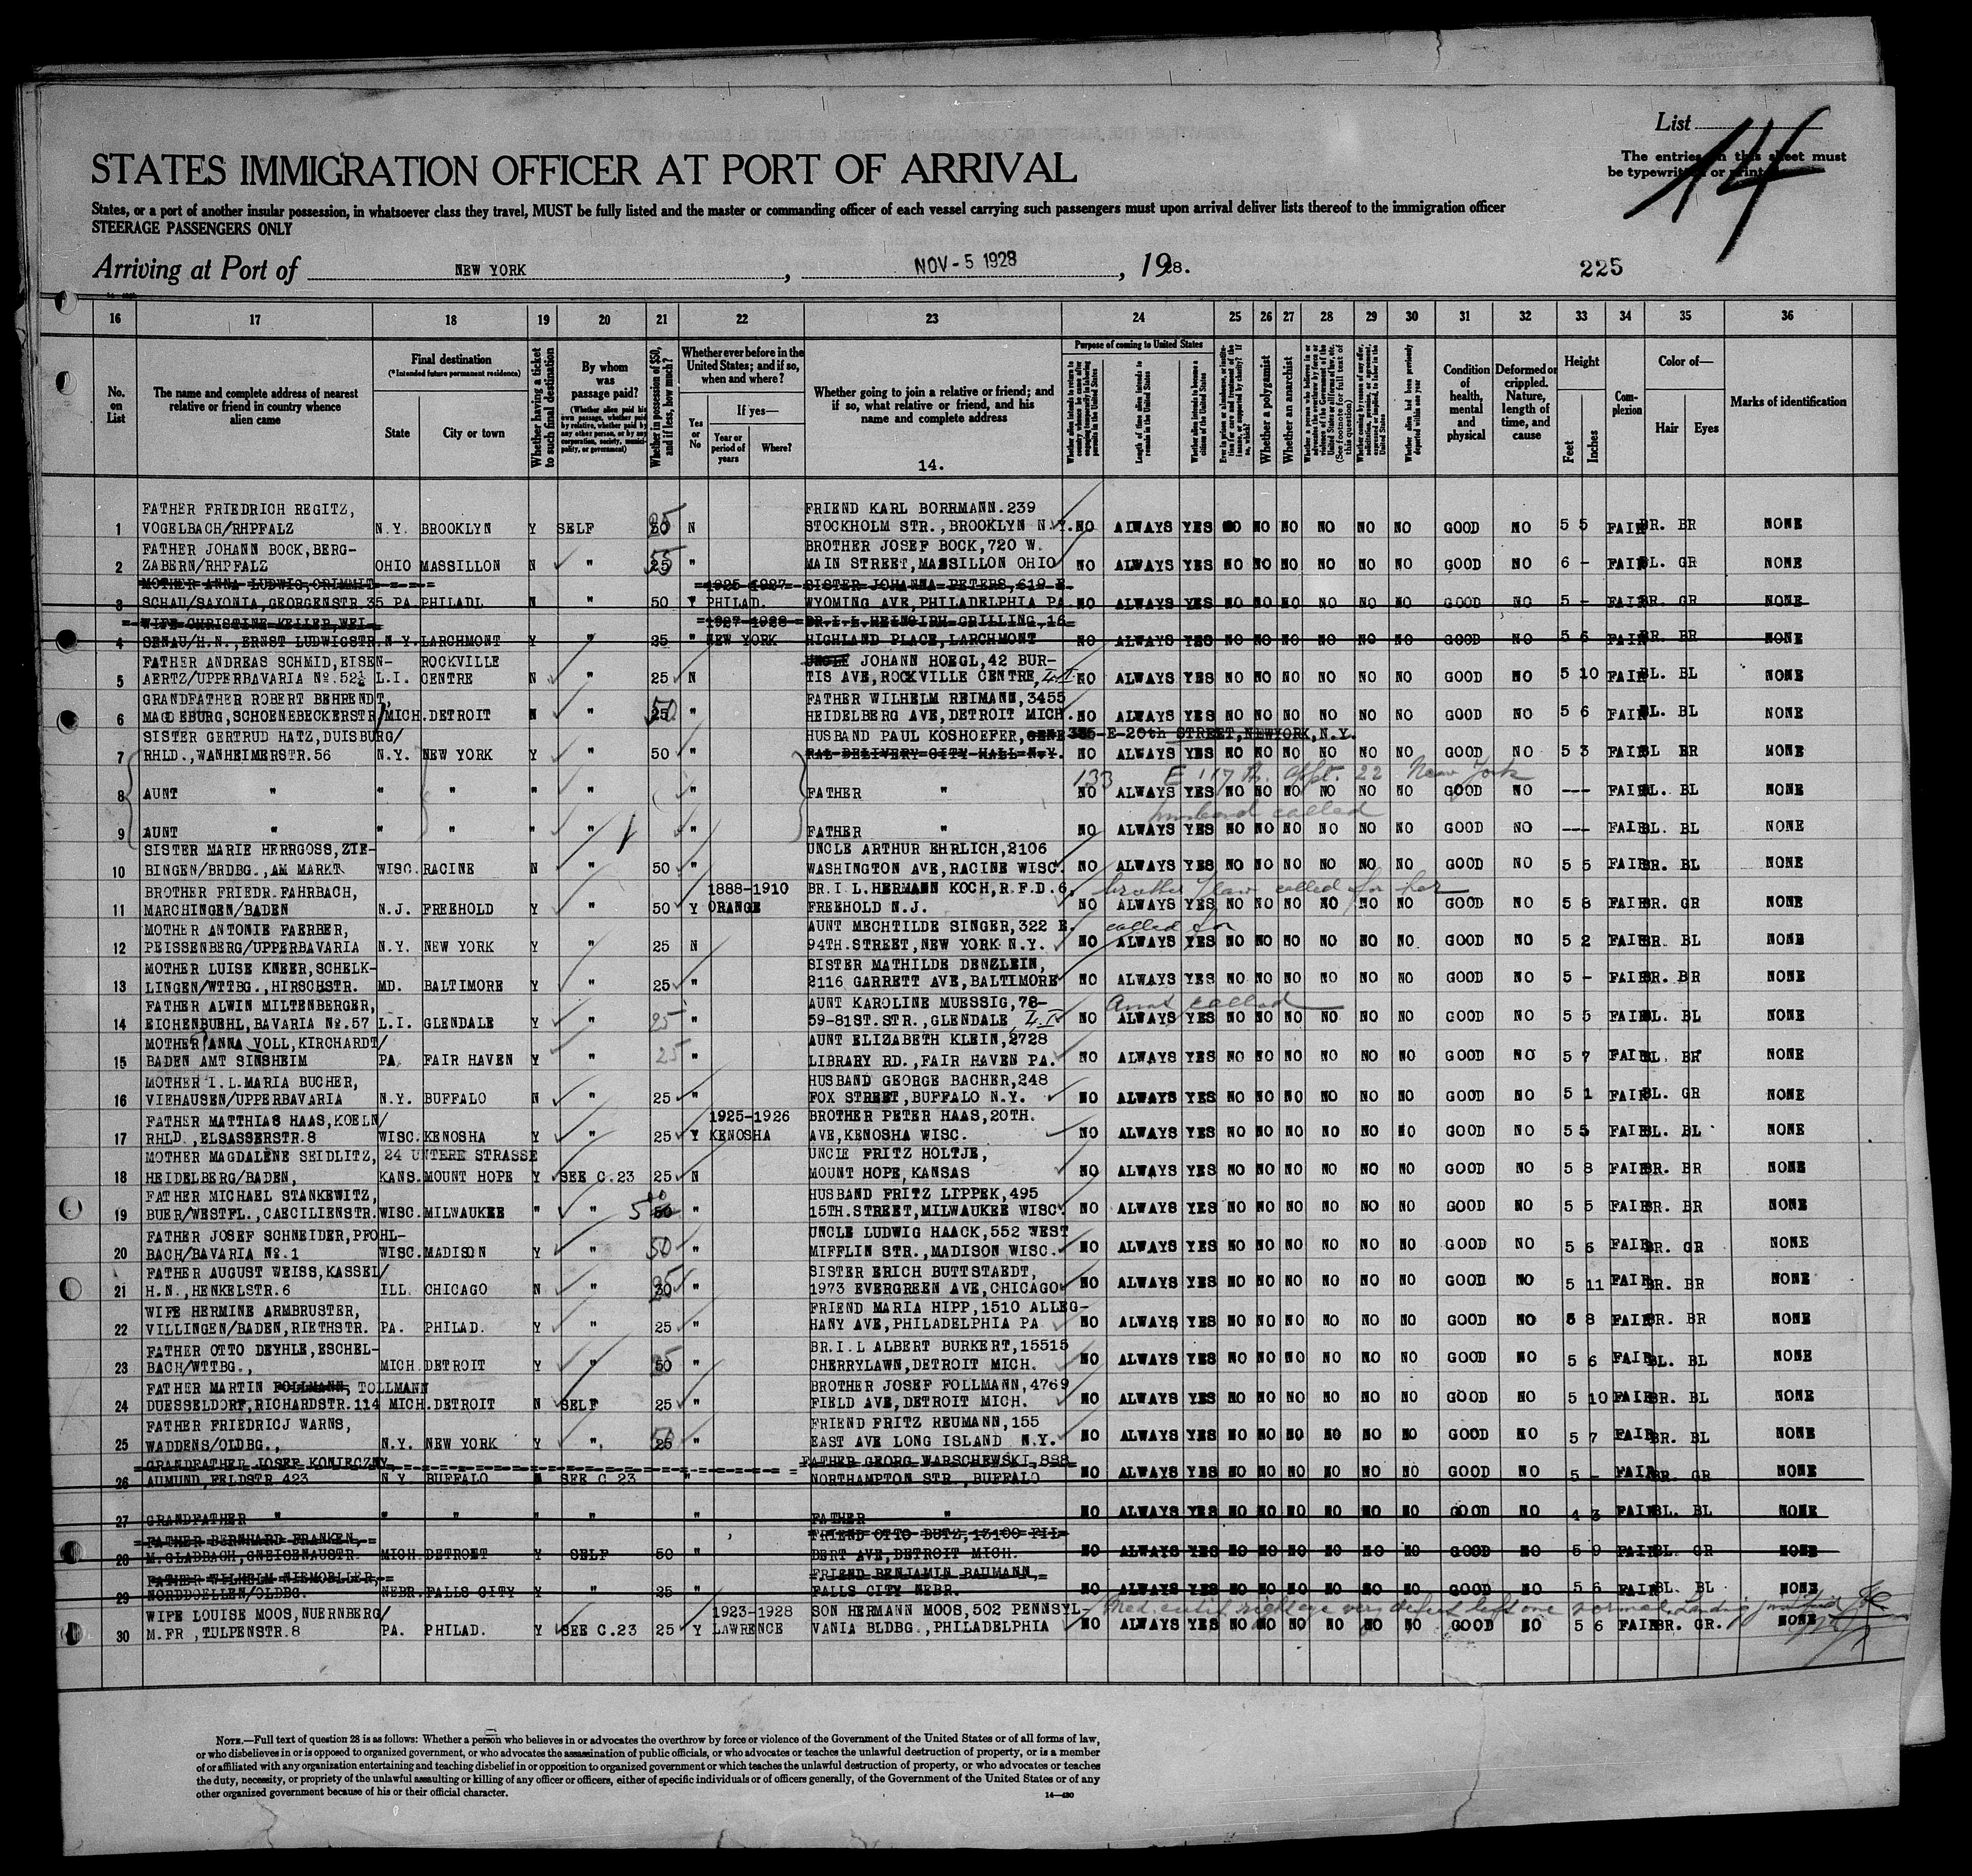 List
14
The entries on this sheet must
be typewritten or printed
STATES IMMIGRATION OFFICER AT PORT OF ARRIVAL
States, or a port of another insular possession, in whatsoever class they travel, MUST be fully listed and the master or commanding officer of each vessel carrying such passengers must upon arrival deliver lists thereof to the immigration officer
STEERAGE PASSENGERS ONLY
Arriving at Port of NEW YORK, NOV - 5 1928, 1928.
225
16 17 18 19 20 21 22 23 24 25 26 27 28 29 30 31 32 33 34 35 36
No. on List
The name and complete address of nearest relative or friend in country whence alien came
Final destination
(*Intended future permanent residence)
State
City or town
Whether having a ticket to such final destination
By whom was passage paid?
(Whether alien paid his own passage, whether paid by relative, whether paid by any other person, or by any corporation, society, municipality, or government)
Whether in possession of $50, and if less, how much?
Whether ever before in the United States; and if so, when and where?
Yes or No
If yes—
Year or period of years
Where?
Whether going to join a relative or friend; and if so, what relative or friend, and his name and complete address
14.
Purpose of coming to United States
Length of time alien intends to remain in the United States
Whether alien intends to become a citizen of the United States
Whether a polygamist
Whether an anarchist
(See footnote for full text of this question)
Condition of health, mental and physical
Deformed or crippled. Nature, length of time, and cause
Height
Feet
Inches
Complexion
Color of—
Hair
Eyes
Marks of identification
FATHER FRIEDRICH REGITZ, FRIEND KARL BORRMANN.239
1 VOGELBACH/RHPFALZ N.Y. BROOKLYN Y SELF 25 N STOCKHOLM STR.,BROOKLYN N.Y. NO ALWAYS YES NO NO NO NO NO NO GOOD NO 5 5 FAIR BR. BR NONE
FATHER JOHANN BOCK,BERG- BROTHER JOSEF BOCK,720 W.
2 ZABERN/RHPFALZ OHIO MASSILLON N " 25 " MAIN STREET,MASSILLON OHIO NO ALWAYS YES NO NO NO NO NO NO GOOD NO 6 - FAIR BL. GR NONE
MOTHER ANNA LUDWIG,CRIMMIT- 1925-1927 SISTER JOHANNA PETERS,619 E.
3 SCHAU/SAXONIA,GEORGENSTR.35 PA. PHILADL N " 50 Y PHILAD. WYOMING AVE,PHILADELPHIA PA. NO ALWAYS YES NO NO NO NO NO NO GOOD NO 5 - FAIR BR. GR NONE
WIFE CHRISTINE KELLER,WEI- 1927-1928 BR.I.L. HEINGIRH GRILLING,16
4 SENAU/H.N., ERNST LUDWIGSTR. N.Y. LARCHMONT Y " 25 " NEW YORK HIGHLAND PLACE,LARCHMONT NO ALWAYS YES NO NO NO NO NO NO GOOD NO 5 6 FAIR BR. BR NONE
FATHER ANDREAS SCHMID,EISEN- ROCKVILLE UNCLE JOHANN HOEGL,42 BUR-
5 AERTZ/UPPERBAVARIA №.52½ L.I. CENTRE N " 25 N TIS AVE,ROCKVILLE CENTRE, L.I. NO ALWAYS YES NO NO NO NO NO NO GOOD NO 5 10 FAIR BL. BL NONE
GRANDFATHER ROBERT BEHRENDT, FATHER WILHELM REIMANN,3455
6 MAGDEBURG,SCHOENEBECKERSTR MICH. DETROIT N " 50 " HEIDELBERG AVE,DETROIT MICH. NO ALWAYS YES NO NO NO NO NO NO GOOD NO 5 6 FAIR BL. BL NONE
SISTER GERTRUD HATZ,DUISBURG/ HUSBAND PAUL KOSHOEFER,GENE 335-E-20th STREET,NEWYORK,N.Y.
7 RHLD.,WANHEIMERSTR.56 N.Y. NEW YORK Y " 50 " RAL DELIVERY CITY HALL N.Y. NO ALWAYS YES NO NO NO NO NO NO GOOD NO 5 3 FAIR BL BR NONE
133 E 117 St. Apt. 22 New York
8 AUNT " " " " " " FATHER " NO ALWAYS YES NO NO NO NO NO NO GOOD NO --- FAIR BL. BL NONE
husband called
9 AUNT " " " " " " FATHER " NO ALWAYS YES NO NO NO NO NO NO GOOD NO --- FAIR BL. BL NONE
SISTER MARIE HERRGOSS,ZIE- UNCLE ARTHUR EHRLICH,2106
10 BINGEN/BRDBG.,AM MARKT WISC. RACINE N " 50 " WASHINGTON AVE,RACINE WISC. NO ALWAYS YES NO NO NO NO NO NO GOOD NO 5 5 FAIR BR. BL NONE
BROTHER FRIEDR.FAHRBACH, 1888-1910 BR.I.L.HERMANN KOCH,R.F.D.6, brother law called for her
11 MARCHINGEN/BADEN N.J. FREEHOLD Y " 50 Y ORANGE FREEHOLD N.J. NO ALWAYS YES NO NO NO NO NO NO GOOD NO 5 8 FAIR BR. GR NONE
MOTHER ANTONIE FAERBER, AUNT MECHTILDE SINGER,322 E. called for
12 PEISSENBERG/UPPERBAVARIA N.Y. NEW YORK Y " 25 N 94TH.STREET,NEW YORK N.Y. NO ALWAYS YES NO NO NO NO NO NO GOOD NO 5 2 FAIR BR. BL NONE
MOTHER LUISE KNEER,SCHELK- SISTER MATHILDE DENZLEIN,
13 LINGEN/WTTBG.,HIRSCHSTR. MD. BALTIMORE Y " 25 " 2116 GARRETT AVE,BALTIMORE NO ALWAYS YES NO NO NO NO NO NO GOOD NO 5 - FAIR BR. BR NONE
FATHER ALWIN MILTENBERGER, AUNT KAROLINE MUESSIG,78- Aunt called
14 EICHENBUEHL,BAVARIA №.57 L.I. GLENDALE Y " 25 " 59-81ST.STR.,GLENDALE, L.I. NO ALWAYS YES NO NO NO NO NO NO GOOD NO 5 5 FAIR BL. BL NONE
MOTHER ANNA VOLL,KIRCHARDT/ AUNT ELIZABETH KLEIN,2728
15 BADEN AMT SINSHEIM PA. FAIR HAVEN Y " 25 " LIBRARY RD.,FAIR HAVEN PA. NO ALWAYS YES NO NO NO NO NO NO GOOD NO 5 7 FAIR BL. BR NONE
MOTHER I.L.MARIA BUCHER, HUSBAND GEORGE BACHER,248
16 VIEHAUSEN/UPPERBAVARIA N.Y. BUFFALO N " 25 " FOX STREET,BUFFALO N.Y. NO ALWAYS YES NO NO NO NO NO NO GOOD NO 5 1 FAIR BL. GR NONE
FATHER MATTHIAS HAAS,KOELN/ 1925-1926 BROTHER PETER HAAS,20TH.
17 RHLD.,ELSASSERSTR.8 WISC. KENOSHA Y " 25 Y KENOSHA AVE,KENOSHA WISC. NO ALWAYS YES NO NO NO NO NO NO GOOD NO 5 5 FAIR BL. BL NONE
MOTHER MAGDALENE SEIDLITZ, 24 UNTERE STRASSE UNCLE FRITZ HOLTJE,
18 HEIDELBERG/BADEN, KANS. MOUNT HOPE Y SEE C.23 25 N MOUNT HOPE,KANSAS NO ALWAYS YES NO NO NO NO NO NO GOOD NO 5 8 FAIR BR. BR NONE
FATHER MICHAEL STANKEWITZ, HUSBAND FRITZ LIPPEK,495
19 BUER/WESTFL.,CAECILIENSTR. WISC. MILWAUKEE " " 50 " 15TH.STREET,MILWAUKEE WISC. NO ALWAYS YES NO NO NO NO NO NO GOOD NO 5 5 FAIR BR. BR NONE
FATHER JOSEF SCHNEIDER,PFOHL- UNCLE LUDWIG HAACK,552 WEST
20 BACH/BAVARIA №.1 WISC. MADISON Y " 50 " MIFFLIN STR.,MADISON WISC. NO ALWAYS YES NO NO NO NO NO NO GOOD NO 5 6 FAIR BR. GR NONE
FATHER AUGUST WEISS,KASSEL/ SISTER ERICH BUTTSTAEDT,
21 H.N.,HENKELSTR.6 ILL. CHICAGO N " " 1973 EVERGREEN AVE,CHICAGO NO ALWAYS YES NO NO NO NO NO NO GOOD NO 5 11 FAIR BR. BR NONE
WIFE HERMINE ARMBRUSTER, FRIEND MARIA HIPP,1510 ALLEG-
22 VILLINGEN/BADEN,RIETHSTR. PA. PHILAD. Y " 25 " HANY AVE,PHILADELPHIA PA NO ALWAYS YES NO NO NO NO NO NO GOOD NO 5 8 FAIR BR. BR NONE
FATHER OTTO DEYHLE,ESCHEL- BR.I.L ALBERT BURKERT,15515
23 BACH/WTTBG., MICH. DETROIT Y " " CHERRYLAWN,DETROIT MICH. NO ALWAYS YES NO NO NO NO NO NO GOOD NO 5 6 FAIR BL. BL NONE
FATHER MARTIN FOLLMANN, TOLLMANN BROTHER JOSEF FOLLMANN,4769
24 DUESSELDORF,RICHARDSTR.114 MICH. DETROIT N SELF 25 " FIELD AVE,DETROIT MICH. NO ALWAYS YES NO NO NO NO NO NO GOOD NO 5 10 FAIR BR. BL NONE
FATHER FRIEDRICJ WARNS, FRIEND FRITZ REUMANN,155
25 WADDENS/OLDBG., N.Y. NEW YORK Y " 25 " EAST AVE LONG ISLAND N.Y. NO ALWAYS YES NO NO NO NO NO NO GOOD NO 5 7 FAIR BR. BL NONE
GRANDFATHER JOSEF KONIECZNY, FATHER GEORG WARSCHEWSKI,888
26 AUMUND,FELDSTR 423 N.Y. BUFFALO N SEE C.23 " NORTHAMPTON STR.,BUFFALO NO ALWAYS YES NO NO NO NO NO NO GOOD NO 5 - FAIR BR. GR NONE
27 GRANDFATHER " " " " " " FATHER " NO ALWAYS YES NO NO NO NO NO NO GOOD NO 4 3 FAIR BL. BL NONE
FATHER BERNHARD FRANKEN, FRIEND OTTO BUTZ,13100 PII-
28 M.GLADBACH,GNEISENAUSTR. MICH. DETROIT Y SELF 50 " BERT AVE,DETROIT MICH. NO ALWAYS YES NO NO NO NO NO NO GOOD NO 5 9 FAIR BL. GR NONE
FATHER WILHELM NIEMOELLER, FRIEND BENJAMIN BAUMANN,
29 NORDDOELLEN/OLDBG. NEBR. FALLS CITY Y " 25 " FALLS CITY NEBR. NO ALWAYS YES NO NO NO NO NO NO GOOD NO 5 6 FAIR BL. BL NONE
WIFE LOUISE MOOS,NUERNBERG/ 1923-1928 SON HERMANN MOOS,502 PENNSYL- Med. right eye defect left one normal
30 M.FR ,TULPENSTR.8 PA. PHILAD. Y SEE C.23 25 Y LAWRENCE VANIA BLDBG.,PHILADELPHIA NO ALWAYS YES NO NO NO NO NO NO GOOD NO 5 6 FAIR BR. GR. NONE
NOTE.—Full text of question 28 is as follows: Whether a person who believes in or advocates the overthrow by force or violence of the Government of the United States or of all forms of law,
or who disbelieves in or is opposed to organized government, or who advocates the assassination of public officials, or who advocates or teaches the unlawful destruction of property, or is a member
of or affiliated with any organization entertaining and teaching disbelief in or opposition to organized government or which teaches the unlawful destruction of property, or who advocates or teaches
the duty, necessity, or propriety of the unlawful assaulting or killing of any officer or officers, either of specific individuals or of officers generally, of the Government of the United States or of any
other organized government because of his or their official character.
14—430